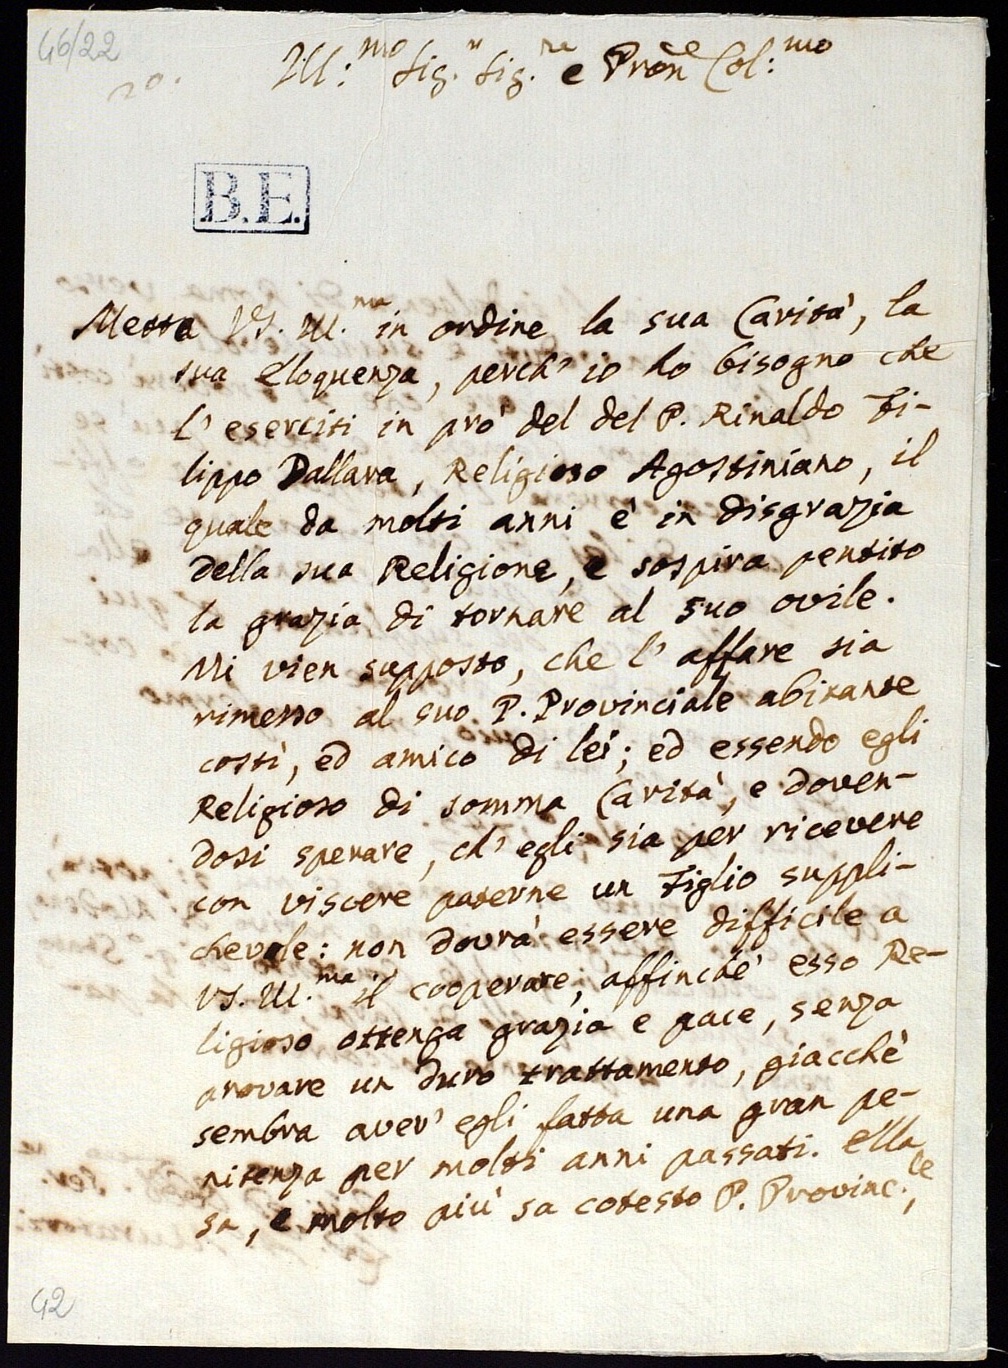 46/22
20.
Ill:mo Sig.r Sig.re e Pron̄e Col:mo
B.E.
Metta VS. Ill.ma in ordine la sua Carità, la
sua Eloquenza, perch' io ho bisogno che
l' eserciti in prò del del P. Rinaldo Fi-
lippo Dallara, Religioso Agostiniano, il
quale da molti anni è in disgrazia
della sua Religione, e sospira pentito
la grazia di tornare al suo ovile.
Mi vien supposto, che l' affare sia
rimesso al suo P. Provinciale abitante
costì, ed amico di lei; ed essendo egli
Religioso di somma Carità, e doven-
dosi sperare, ch' egli sia per ricevere
con viscere paterne un Figlio suppli-
chevole: non dovrà essere difficile a
VS. Ill.ma il cooperare, affinchè esso Re-
ligioso ottenga grazia e pace, senza
provare un duro trattamento, giacchè
sembra aver' egli fatta una gran pe-
nitenza per molti anni passati. Ella
sa, e molto più sa cotesto P. Provinc.le,
42